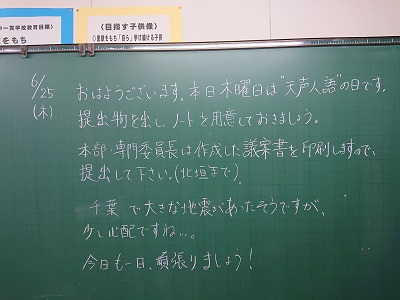 一貫学校教育目標〉
をもち
〈目指す子供像〉
◇意欲をもち「自ら」学び続ける子供
6/25
(木)
おはようございます。本日木曜日は“天声人語”の日です。
提出物を出し、ノートを用意しておきましょう。
本部・専門委員長は作成した議案書を印刷しますので、
提出して下さい。(北垣まで)
千葉で大きな地震があったそうですが、
少し心配ですね…。
今日も一日、頑張りましょう!